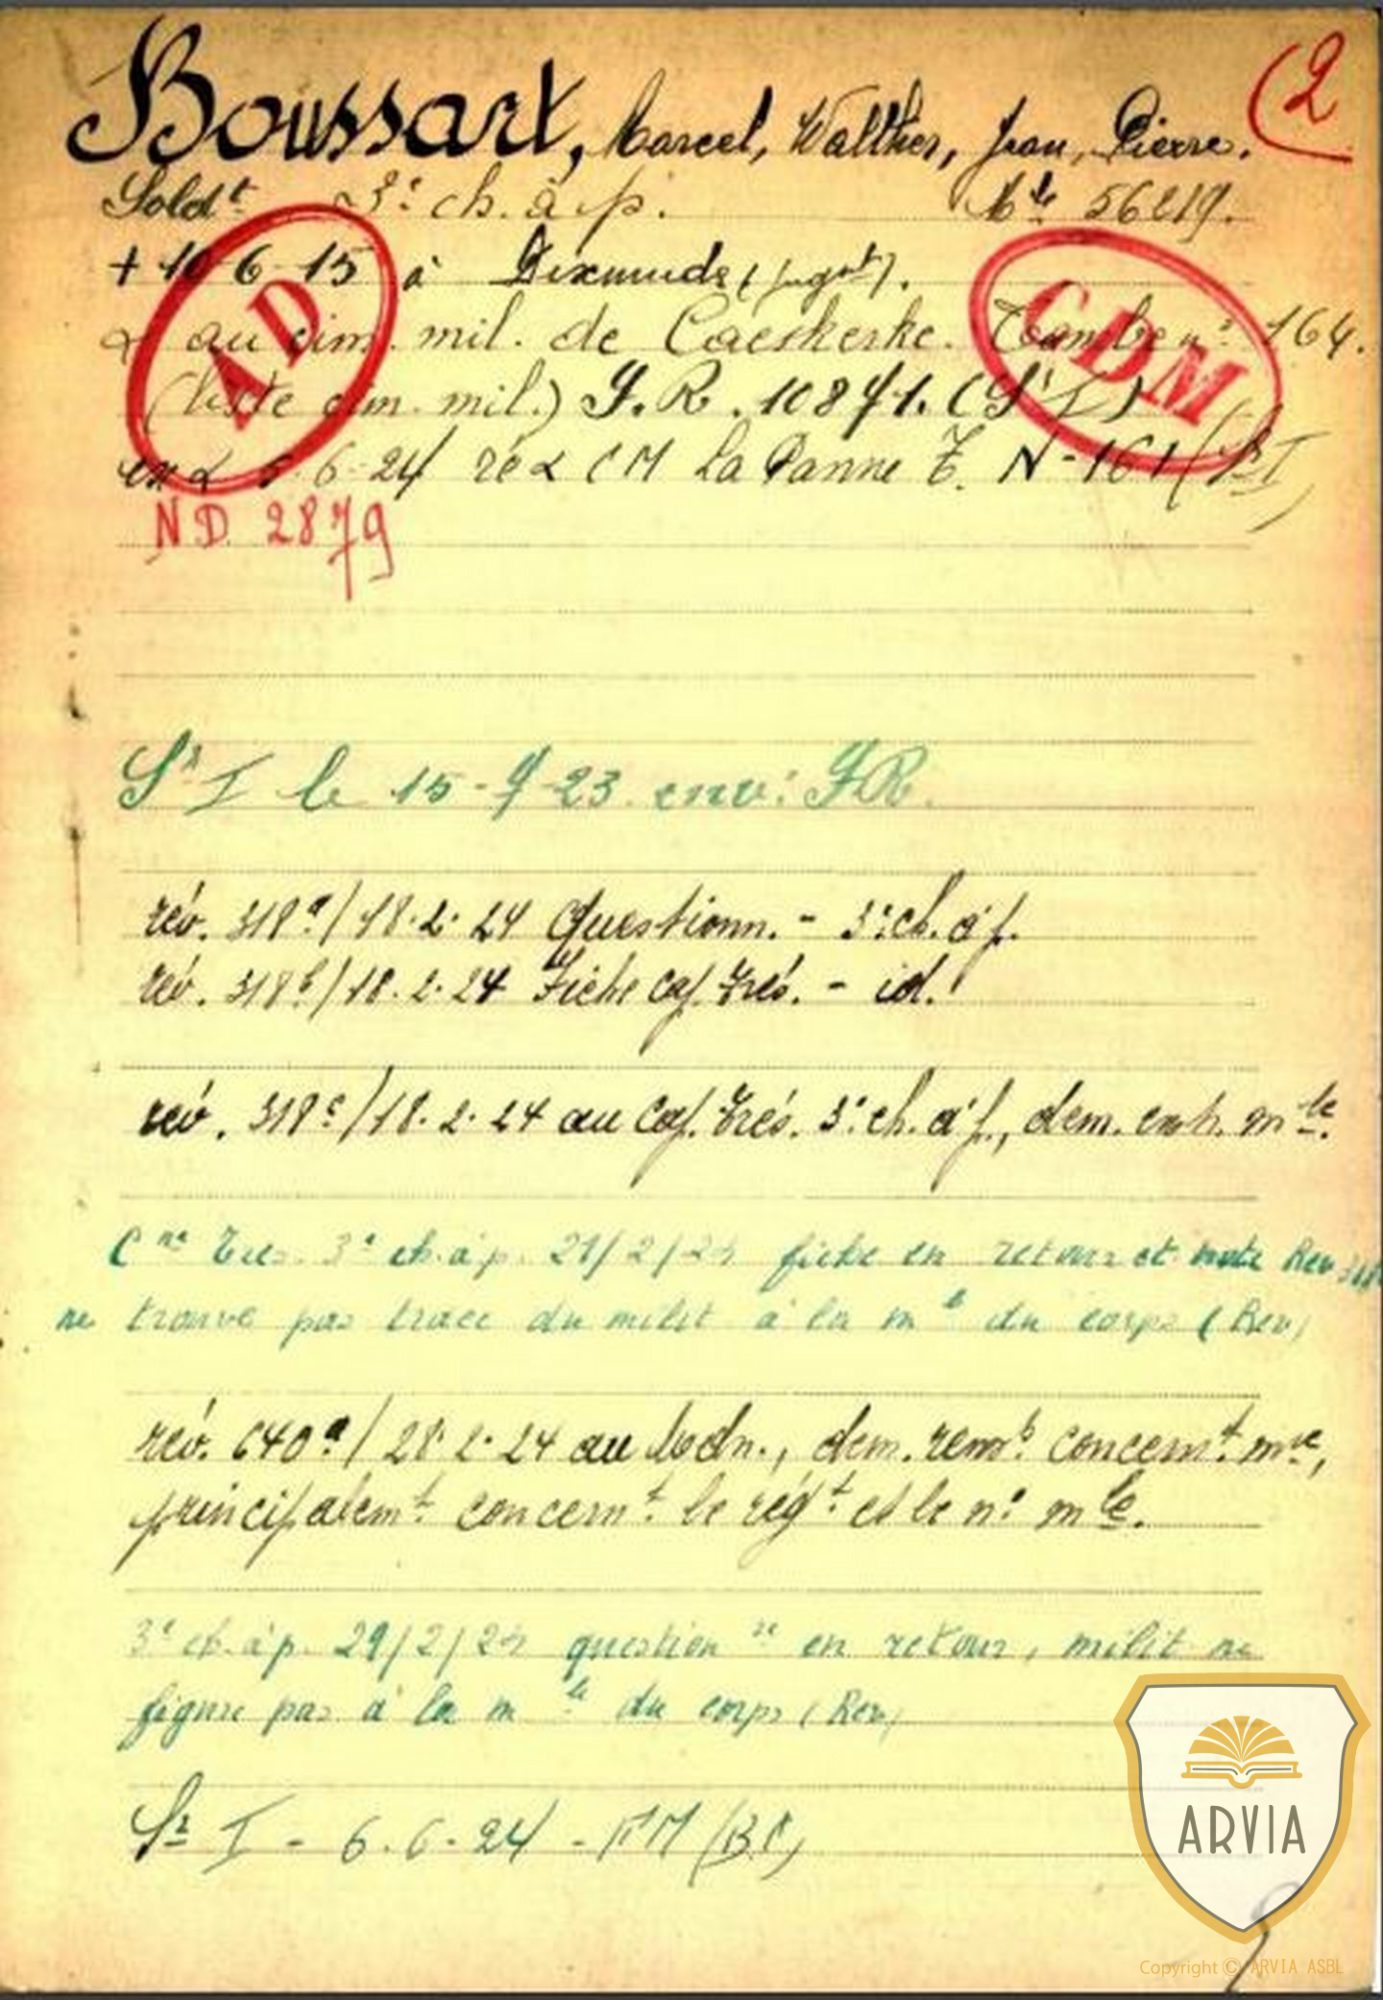 (2
Boussart, Marcel, Walther, Jean, Pierre.
Soldt 3e ch. à p. Mle 56219.
+ 10-6-15 à Dixmude (jugt).
au cim. mil. de Caeskerke. Tombe no 164.
(liste cim. mil.) J.R. 10871. (Sr I)
ex 5.6-24 ré CM La Panne T. N-161 (Sr I)
AD
CDM
N D. 2879
Sr I le 15-9-23 env: JR.
rév. 318a/18.2.24 Questionn. - 3e ch. à p.
rév. 318b/18.2.24 Fiche Cap. Trés. - id.
rév. 318c/18.2.24 au Cap. Trés. 3e ch. à p., dem. extr. mle.
Cne Tres. 3e ch. à p. 21/2/24 fiche en retour et note Rev 318
ne trouve pas trace du milit à la mle du corps (Rev)
rév. 640a/28.2.24 au Mdn., dem. remb concernt mle,
principalemt concernt le régt et le no mle.
3e ch. à p. 29/2/24 question re en retour, milit ne
figure pas à la mle du corps (Rev)
Sr I - 6.6-24 - (BC)
ARVIA
Copyright © ARVIA ASBL